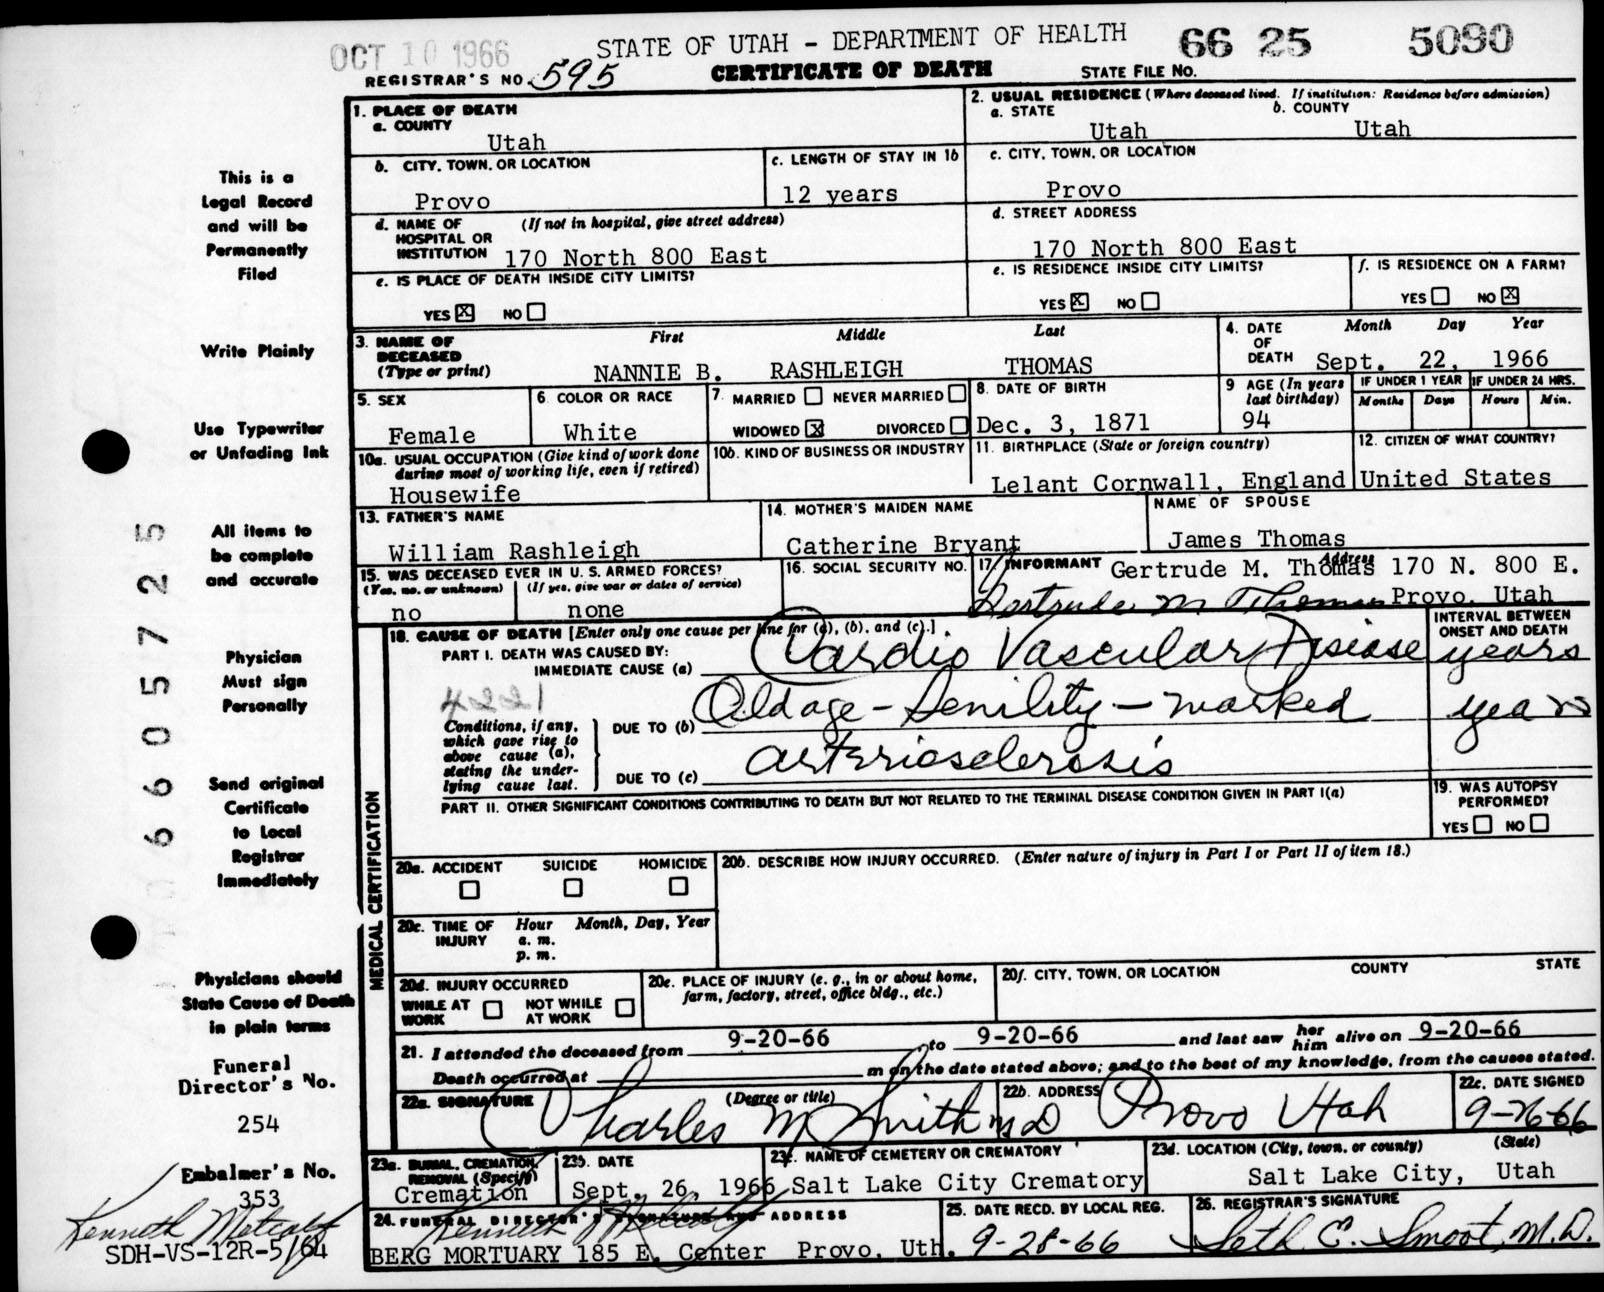 OCT 10 1966
STATE OF UTAH - DEPARTMENT OF HEALTH 66 25 5090
REGISTRAR'S NO. 595 CERTIFICATE OF DEATH STATE FILE NO.
1. PLACE OF DEATH
a. COUNTY
Utah
2. USUAL RESIDENCE (Where deceased lived. If institution: Residence before admission)
a. STATE b. COUNTY
Utah Utah
b. CITY, TOWN, OR LOCATION
Provo
c. LENGTH OF STAY IN 1b
12 years
c. CITY, TOWN, OR LOCATION
Provo
d. NAME OF HOSPITAL OR INSTITUTION (If not in hospital, give street address)
170 North 800 East
d. STREET ADDRESS
170 North 800 East
e. IS PLACE OF DEATH INSIDE CITY LIMITS?
YES X NO
e. IS RESIDENCE INSIDE CITY LIMITS?
YES X NO
f. IS RESIDENCE ON A FARM?
YES NO X
3. NAME OF DECEASED (Type or print)
First Middle Last
NANNIE B. RASHLEIGH THOMAS
4. DATE OF DEATH Month Day Year
Sept. 22, 1966
5. SEX
Female
6. COLOR OR RACE
White
7. MARRIED NEVER MARRIED
WIDOWED X DIVORCED
8. DATE OF BIRTH
Dec. 3, 1871
9 AGE (In years last birthday)
94
IF UNDER 1 YEAR IF UNDER 24 HRS.
Months Days Hours Min.
10a. USUAL OCCUPATION (Give kind of work done during most of working life, even if retired)
Housewife
10b. KIND OF BUSINESS OR INDUSTRY
11. BIRTHPLACE (State or foreign country)
Lelant Cornwall, England
12. CITIZEN OF WHAT COUNTRY?
United States
13. FATHER'S NAME
William Rashleigh
14. MOTHER'S MAIDEN NAME
Catherine Bryant
NAME OF SPOUSE
James Thomas
15. WAS DECEASED EVER IN U. S. ARMED FORCES?
(Yes, no, or unknown) (If yes, give war or dates of service)
no none
16. SOCIAL SECURITY NO.
17. INFORMANT Address
Gertrude M. Thomas 170 N. 800 E.
Gertrude M Thomas Provo, Utah
MEDICAL CERTIFICATION
18. CAUSE OF DEATH [Enter only one cause per line for (a), (b), and (c).]
INTERVAL BETWEEN ONSET AND DEATH
PART I. DEATH WAS CAUSED BY:
IMMEDIATE CAUSE (a) Cardio Vascular Disease years
4221
Conditions, if any, which gave rise to above cause (a), stating the underlying cause last.
DUE TO (b) Old age - Senility - marked years
DUE TO (c) arteriosclerosis
PART II. OTHER SIGNIFICANT CONDITIONS CONTRIBUTING TO DEATH BUT NOT RELATED TO THE TERMINAL DISEASE CONDITION GIVEN IN PART I(a)
19. WAS AUTOPSY PERFORMED?
YES NO
20a. ACCIDENT SUICIDE HOMICIDE
20b. DESCRIBE HOW INJURY OCCURRED. (Enter nature of injury in Part I or Part II of item 18.)
20c. TIME OF INJURY Hour Month, Day, Year
a. m.
p. m.
20d. INJURY OCCURRED
WHILE AT WORK NOT WHILE AT WORK
20e. PLACE OF INJURY (e. g., in or about home, farm, factory, street, office bldg., etc.)
20f. CITY, TOWN, OR LOCATION COUNTY STATE
21. I attended the deceased from 9-20-66 to 9-20-66 and last saw her him alive on 9-20-66
Death occurred at m on the date stated above; and to the best of my knowledge, from the causes stated.
22a. SIGNATURE (Degree or title)
Charles M Smith MD
22b. ADDRESS
Provo Utah
22c. DATE SIGNED
9-26-66
23a. BURIAL, CREMATION, REMOVAL (Specify)
Cremation
23b. DATE
Sept. 26, 1966
23c. NAME OF CEMETERY OR CREMATORY
Salt Lake City Crematory
23d. LOCATION (City, town, or county) (State)
Salt Lake City, Utah
24. FUNERAL DIRECTOR'S SIGNATURE AND ADDRESS
Kenneth Metcalf
BERG MORTUARY 185 E. Center Provo, Uth.
25. DATE RECD. BY LOCAL REG.
9-28-66
26. REGISTRAR'S SIGNATURE
Seth E. Smoot, M.D.
This is a
Legal Record
and will be
Permanently
Filed
Write Plainly
Use Typewriter
or Unfading Ink
All items to
be complete
and accurate
Physician
Must sign
Personally
Send original
Certificate
to Local
Registrar
Immediately
Physicians should
State Cause of Death
in plain terms
Funeral
Director's No.
254
Embalmer's No.
353
Kenneth Metcalf
SDH-VS-12R-5/64
6605725